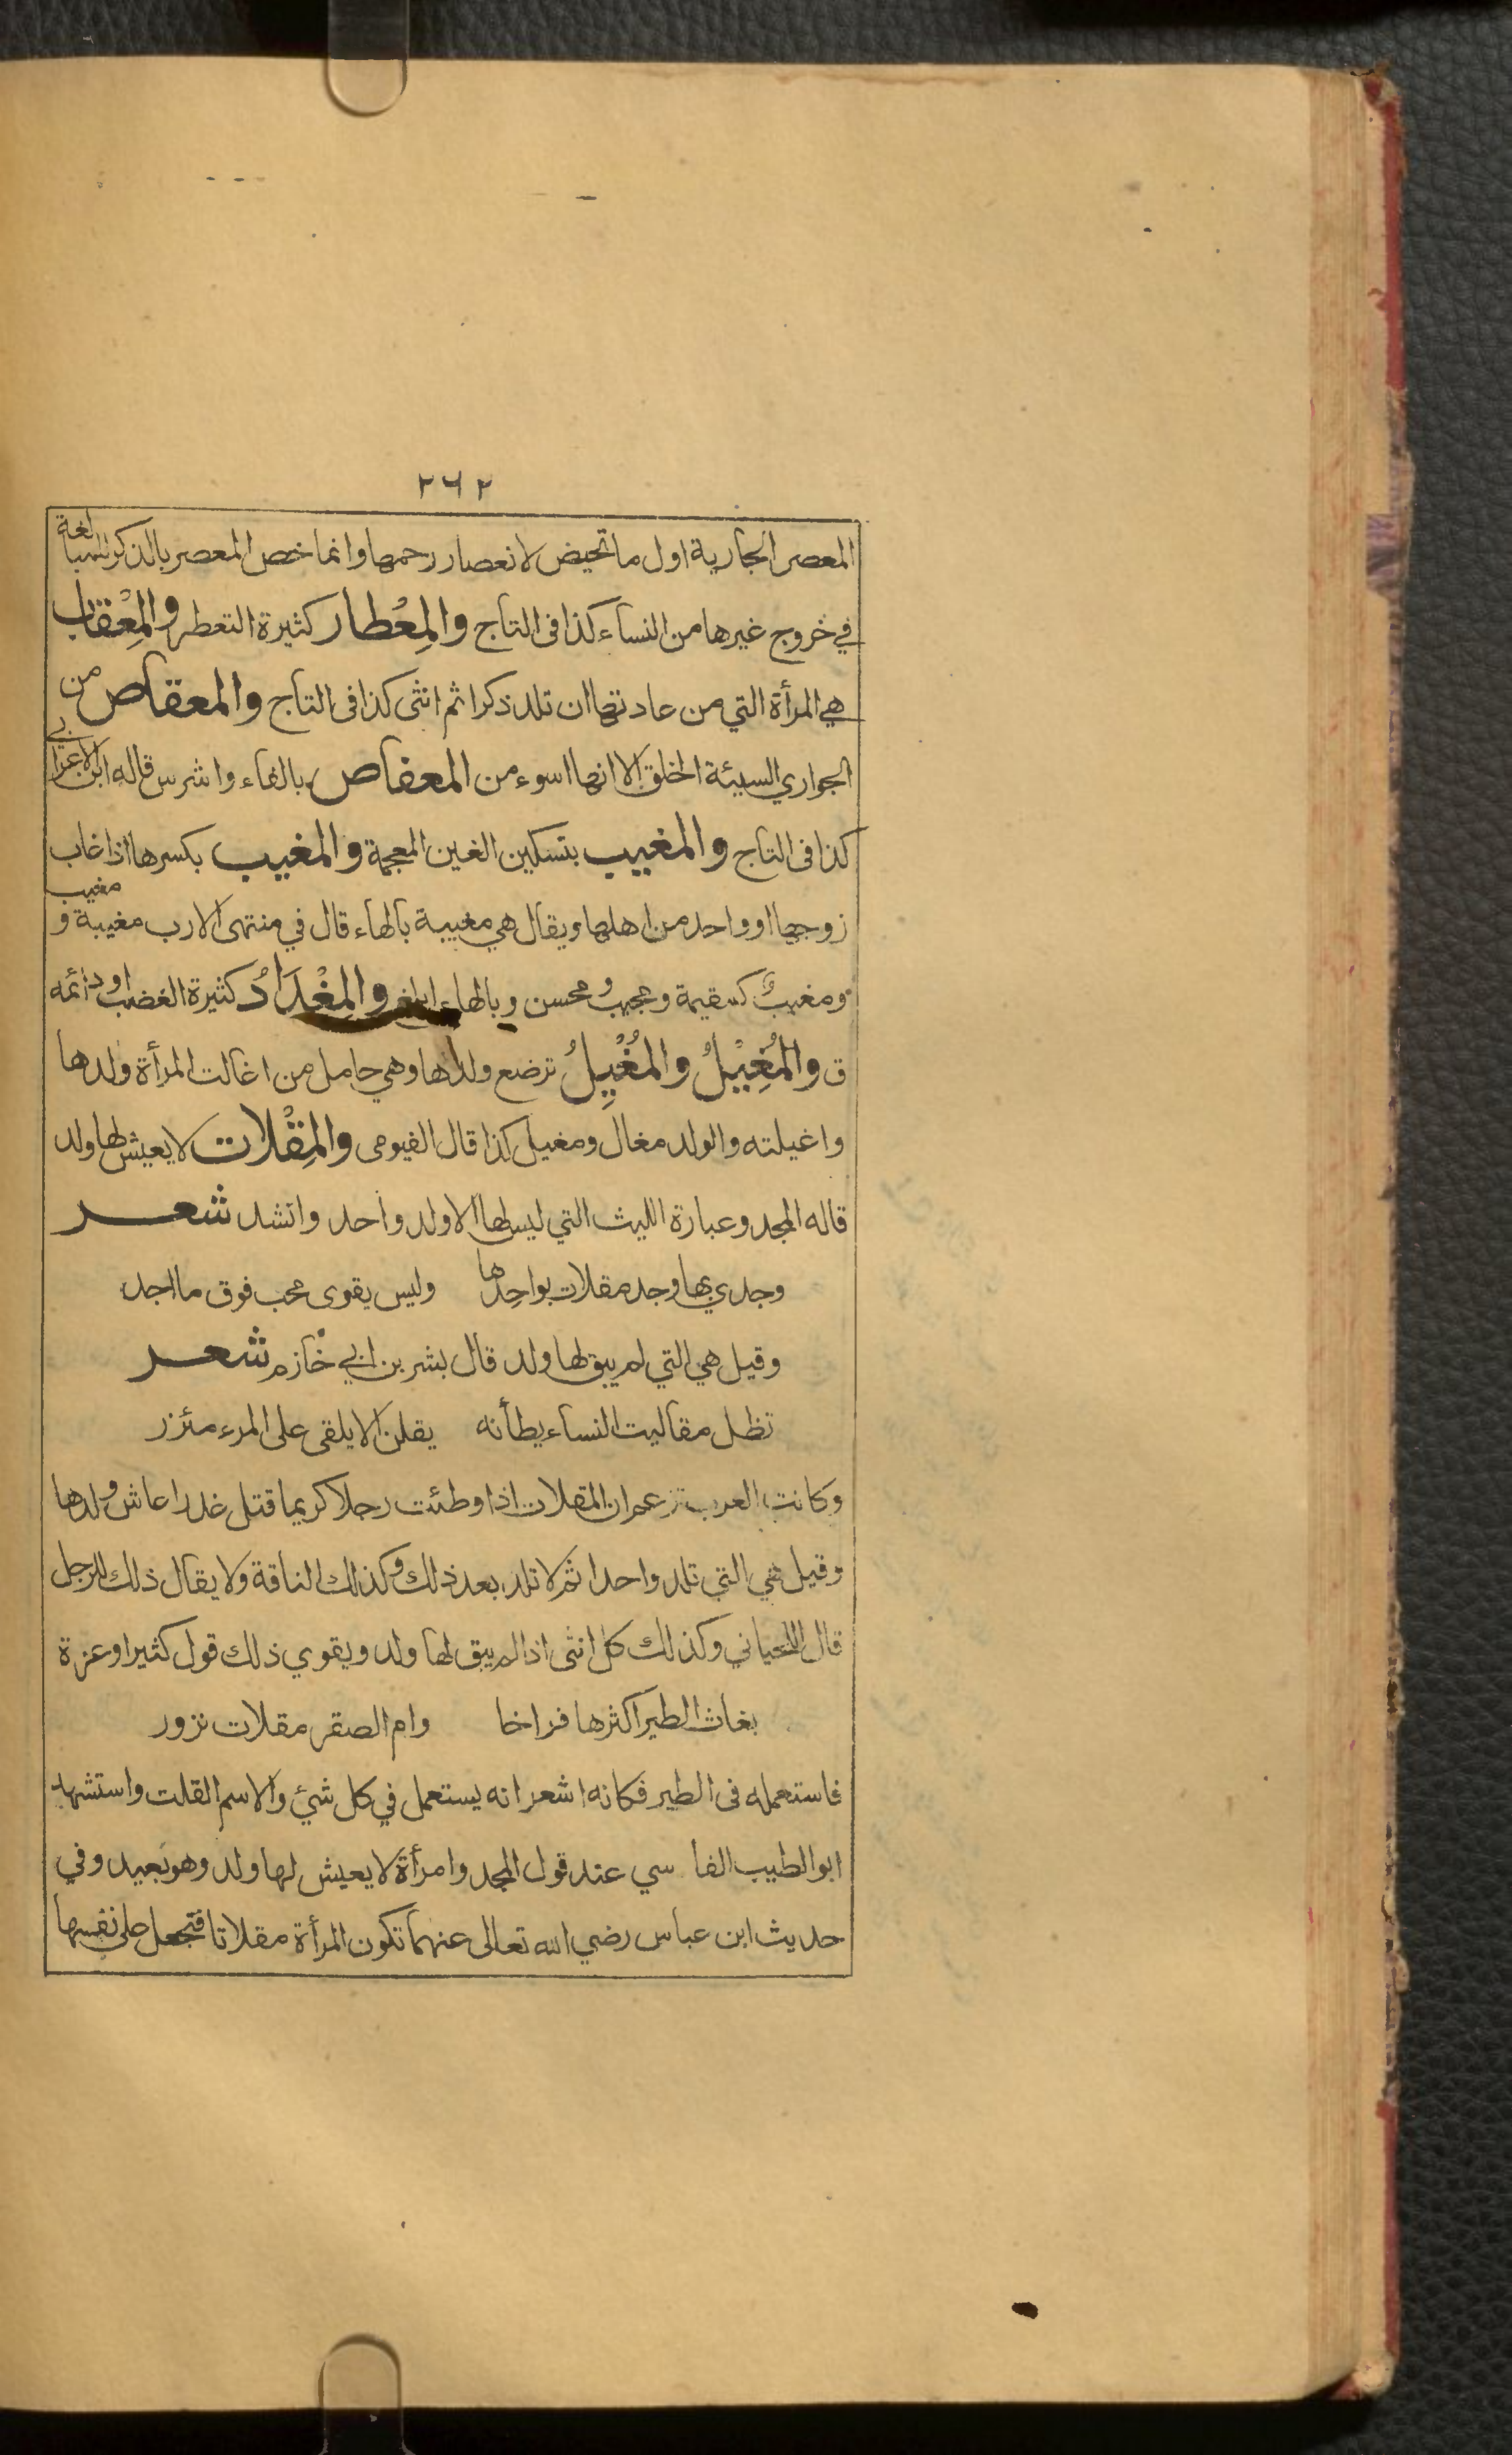 ٢٦٢
المعصر الجارية اول ما تحيض لانعصار رحمها وانما خص المعصر بالذكر للمبالغة
في خروج غيرها من النساء كذا فى التاج والمِعْطار كثيرة التعطر والمِعْقاب
هي المرأة التي من عادتها ان تلد ذكرا ثم انثى كذا فى التاج والمعقاص من
الجواري السيئة الخلق الا انها اسوء من المعفاص بالفاء واشرس قاله ابن الاعرابي
كذا فى التاج والمغيب بتسكين الغين المعجمة والمغيب بكسرها اذا غاب
زوجها او واحد من اهلها ويقال هي مغيبة بالهاء قال في منتهى الارب مغيبة و مغيب
ومغيبٌ كسقيمة وعجيب ومحسن وبالهاء ابلغ والمِغْدَادُ كثيرة الغضب او دائمه
ق والمُغِيْلُ والمُغْيِلُ ترضع ولدها وهي حامل من اغالت المرأة ولدها
واغيلته والولد مغال ومغيل كذا قال الفيومى والمِقْلات لا يعيش لها ولد
قاله المجد وعبارة الليث التي ليس لها الا ولد واحد وانشد شعر
وجدي بها وجد مقلات بواحِدها وليس يقوى محب فوق ما اجد
وقيل هي التي لم يبق لها ولد قال بشر بن ابي خازم شعر
تظل مقاليت النساء يطأنه يقلن الا يلقى على المرء مئزر
وكانت العرب تزعم ان المقلات اذا وطئت رجلا كريما قتل غدرا عاش ولدها
وقيل هي التي تلد واحدا ثم لا تلد بعد ذلك وكذلك الناقة ولا يقال ذلك للرجل
قال اللحياني وكذلك كل انثى اذا لم يبق لها ولد ويقوي ذلك قول كثير او عزة
بغاث الطير اكثرها فراخا وام الصقر مقلات نزور
فاستعمله فى الطير فكانه اشعر انه يستعمل في كل شئ والاسم القلت واستشهد
ابو الطيب الفا سي عند قول المجد وامرأة لا يعيش لها ولد وهو بعيد وفي
حديث ابن عباس رضي الله تعالى عنهما تكون المرأة مقلاتا فتجعل على نفسها